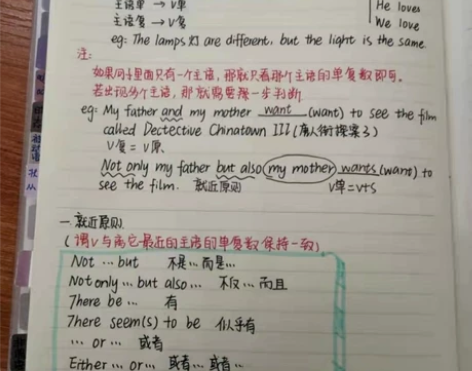 主语单 → v单
He loves
主语复 → v复
We love
eg: The lamps 灯 are different, but the light is the same
注:
如果句子里面只有一个主语, 那就只看那个主语的单复数即可.
若出现多个主语, 那就需要探一步判断
eg: My father and my mother want (want) to see the film
called Dectective Chinatown III (唐人街探案3)
V复 = V原.
Not only my father but also (my mother) wants (want) to
see the film. 就近原则 v单=v+s
一.就近原则.
(谓v与离它最近的主语的单复数保持一致)
Not … but 不是…而是…
Not only … but also … 不仅…而且
There be … 有
There seem(s) to be 似乎有
… or … 或者
Either … or … 或者…或者…